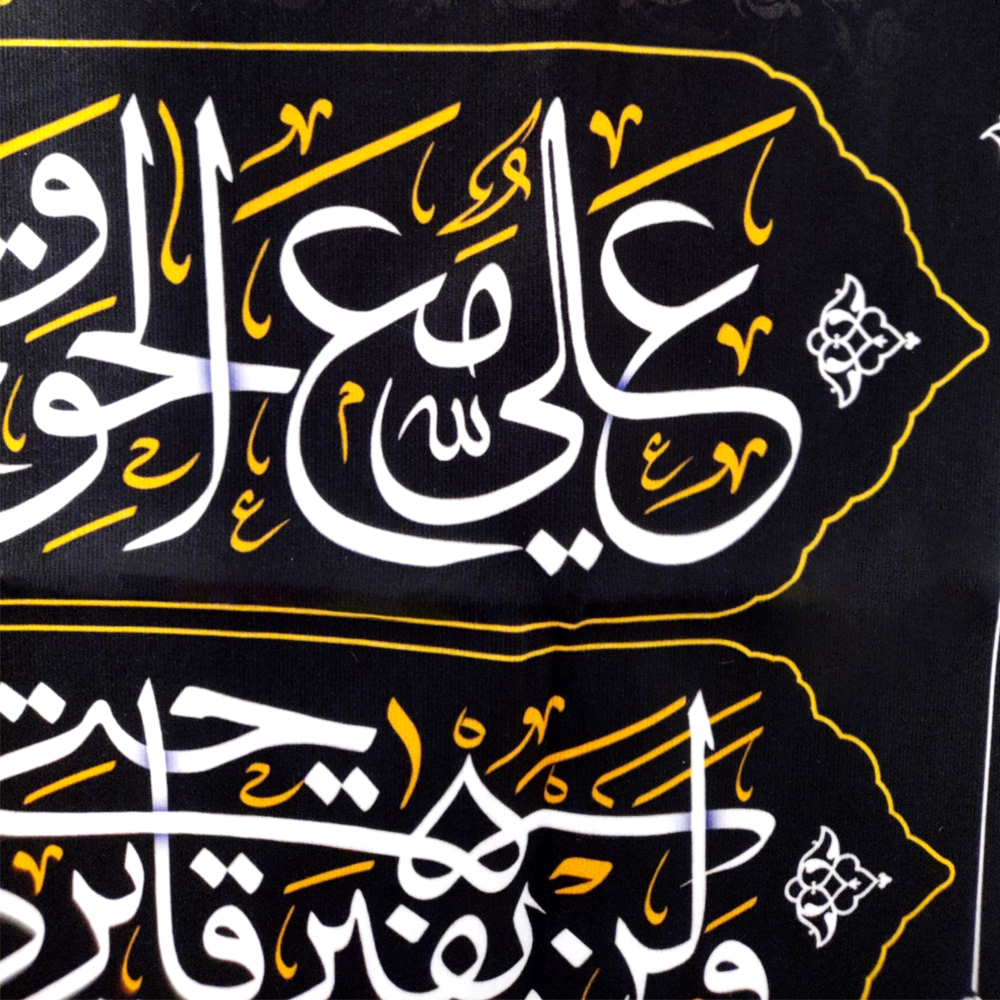 عَلِيٌّ مَعَ الحَقِّ وَ
وَلَن يَفتَرِقا حَتّى